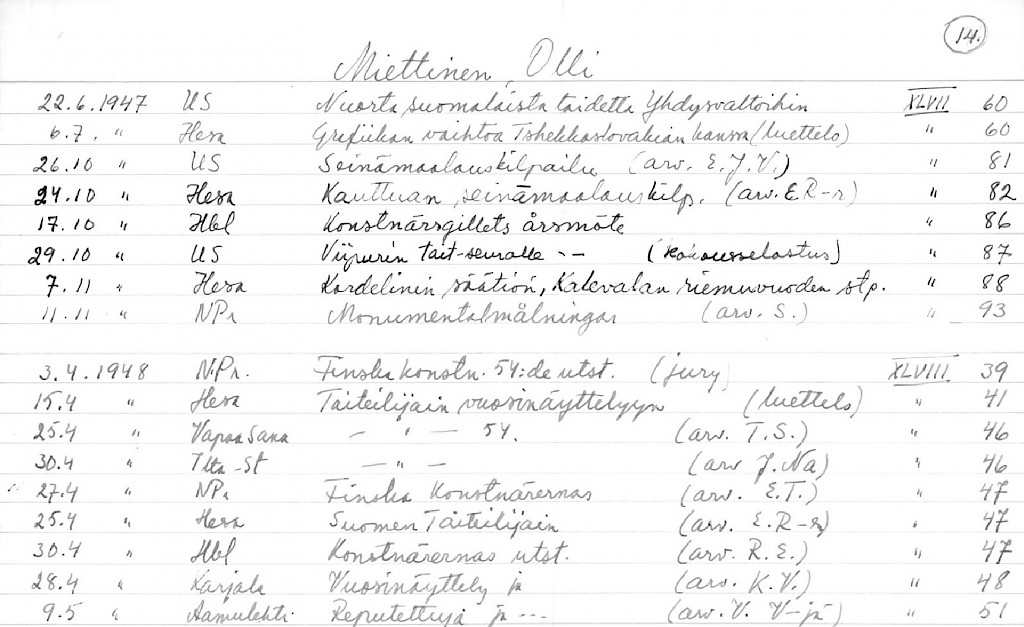 14.
Miettinen, Olli
22.6.1947 US Nuorta suomalaista taidetta Yhdysvaltoihin XLVII 60
6.7. " Hesa Grafiikan vaihtoa Tshekkoslovakian kanssa (luettelo) " 60
26.10 " US Seinämaalauskilpailu (arv. E.J.V.) " 81
24.10 " Hesa Kauttuan seinämaalauskilp. (arv. E R-r) " 82
17.10 " Hbl Konstnärsgillets årsmöte " 86
29.10 " US Viipurin tait-seuralle -- (kokousselostus) " 87
7.11 " Hesa Kordelinin säätiön, Kalevalan riemuvuoden stp. " 88
11.11 " NPr Monumentalmålningar (arv. S.) " 93
3.4.1948 N.Pr. Finska konstn. 54:de utst. (jury) XLVIII 39
15.4 " Hesa Taiteilijain vuosinäyttelyyn (luettelo) " 41
25.4 " Vapaa Sana - " - 54. (arv. T.S.) " 46
30.4 " Ilta-St - " - (arv J. Na) " 46
27.4 " NPr Finska Konstnärernas (arv. E.T.) " 47
25.4 " Hesa Suomen Taiteilijain (arv. E.R-r) " 47
30.4 " Hbl Konstnärernas utst. (arv. R.E.) " 47
28.4 " Karjala Vuosinäyttely ja (arv. K.V.) " 48
9.5 " Aamulehti Reputettuja ja --- (arv. V. V-jä) " 51